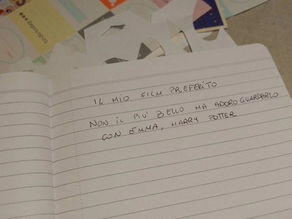 IL MIO FILM PREFERITO
NON IL PIÙ BELLO MA ADORO GUARDARLO
CON EMMA, HARRY POTTER